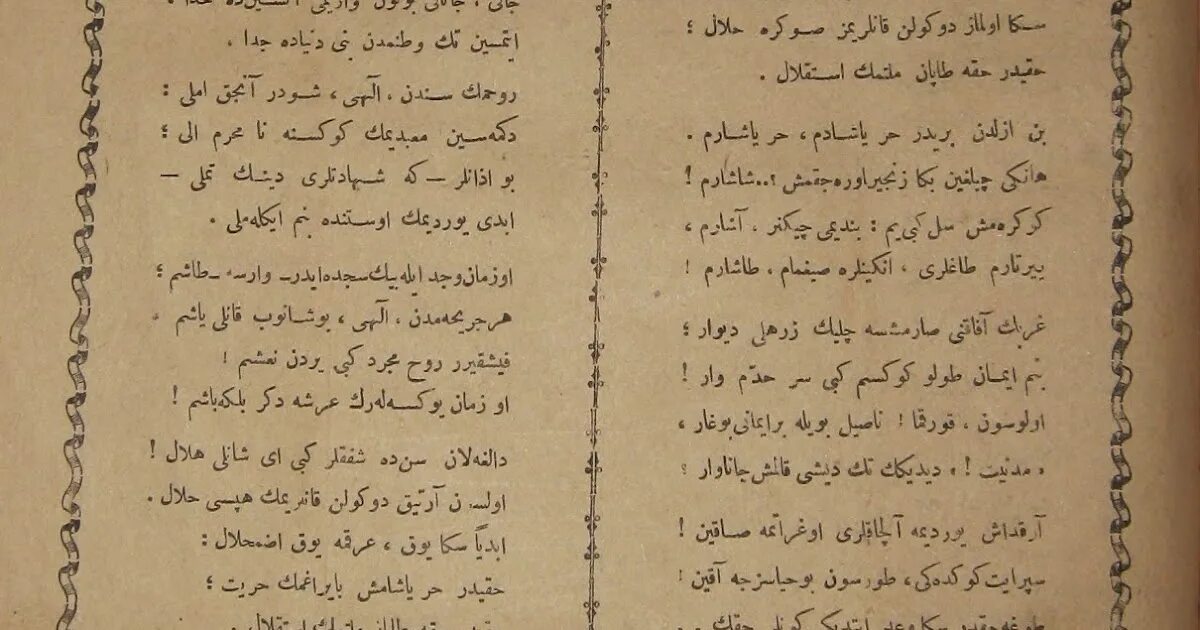 سكا اولماز دوكولن قانلریمز صوكره حلال ؛
حقیدر حقه طاپان ملتمك استقلال .
بن ازلدن بریدر حر یاشادم ، حر یاشارم .
هانكی چیلغین بكا زنجیر اوره‌جقمش ؟.. شاشارم !
كوكره‌مش سل كبی‌یم : بندیمی چیكنر ، آشارم ،
ییرتارم طاغلری ، انكینلره صیغمام ، طاشارم !
غربك آفاقنی صارمشسه چلیك زرهلی دیوار ؛
بنم ایمان طولو كوكسم كبی سر حدّم وار !
اولوسون ، قورقما ! ناصیل بویله بر ایمانی بوغار ،
« مدنیت ! » دیدیكك تك دیشی قالمش جاناوار ؟
آرقداش یوردیمه آلچاقلری اوغراتمه صاقین !
سپر ایت كوكده‌كی ، طورسون بو حیاسزجه آقین !
سكا وعد ایتدیكی كونلر حقك . .
جانی ، جانانی بوتون واریمی آلسین‌ده خدا ،
ایتمسین تك وطنمدن بنی دنیاده جدا .
روحمك سندن ، آلهی ، شودر آنجق املی :
دكمه‌سین معبدیمك كوكسنه نا محرم الی ؛
بو اذانلر — كه شهادتلری دینك تملی —
ابدی یوردیمك اوستنده بنم ایكله‌ملی .
او زمان وجد ایله بیك سجده ایدر ـ وارسه ـ طاشم ؛
هر جریحه‌مدن ، آلهی ، بوشانوب قانلی یاشم
فیشقیرر روح مجرد كبی یردن نعشم !
او زمان یوكسه‌له‌رك عرشه دكر بلكه باشم !
دالغه‌لان سن‌ده شفقلر كبی ای شانلی هلال !
اولسن آرتیق دوكولن قانلریمك هپسی حلال .
ابدیاً سكا یوق ، عرقمه یوق اضمحلال :
حقیدر حر یاشامش بایراغمك حریت ؛
حقیدر حقه طاپان ملتمك استقلال .